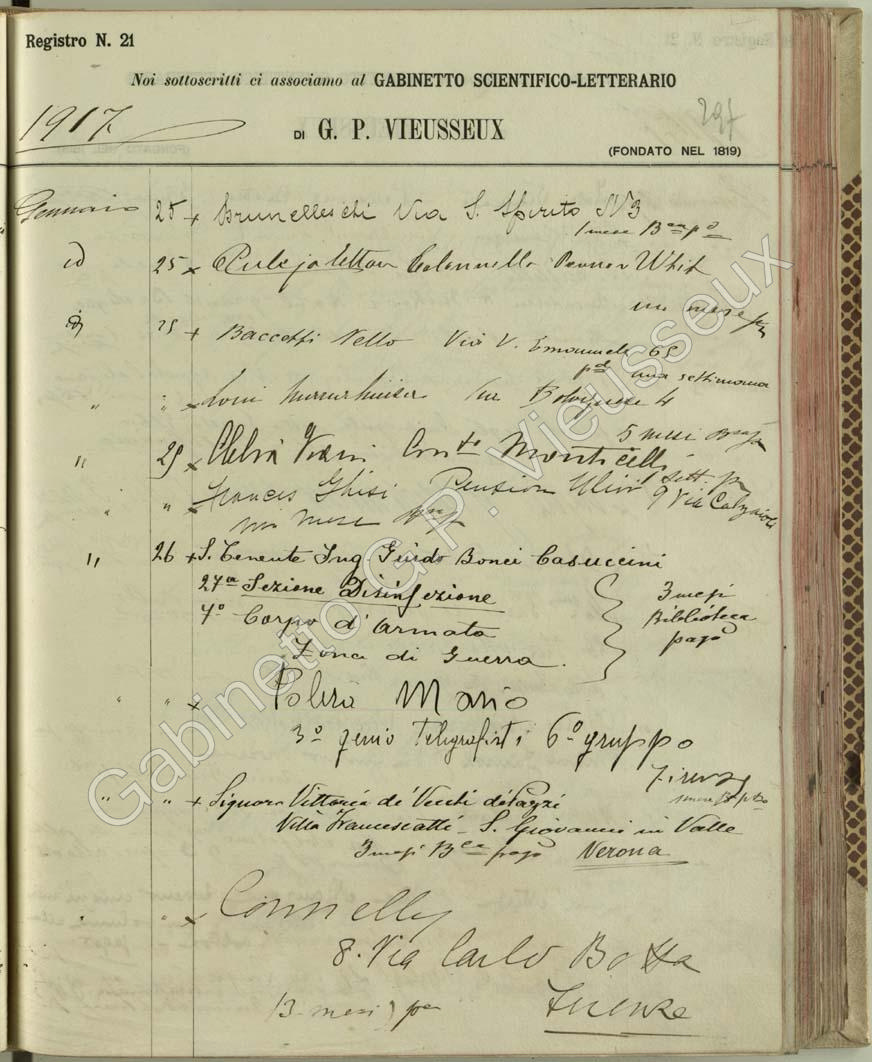 Registro N. 21
Noi sottoscritti ci associamo al GABINETTO SCIENTIFICO-LETTERARIO
1917
297
DI G. P. VIEUSSEUX
(FONDATO NEL 1819)
Gennaio 25 x Brunelleschi Via S. Spirito
1 mese
id 25 x Colonnello
un mese
id 25 x Baccetti Nello Via V. Emanuele 65
pd una settimana
" " x Via Bolognese 4
5 mesi
" 25 x Conte Monticelli
sett.
" " x Frances Ghisi Pension 9 Via Calzaioli
un mese
" 26 x S. Tenente Ing. Guido Bonci Casuccini
27a Sezione Disinfezione 3 mesi
7° Corpo d'Armata Biblioteca
Zona di Guerra. pagò
" " x Polera Mario
3° genio Telegrafisti 6° gruppo
Firenze
" " x Signora Vittoria de' Vecchi de' Pazzi
Villa Francescatti - S. Giovanni in Valle
3 mesi Bca pagò Verona
" " x Connelly
8. Via Carlo Botta
(3 mesi) Firenze
Gabinetto G.P. Vieusseux